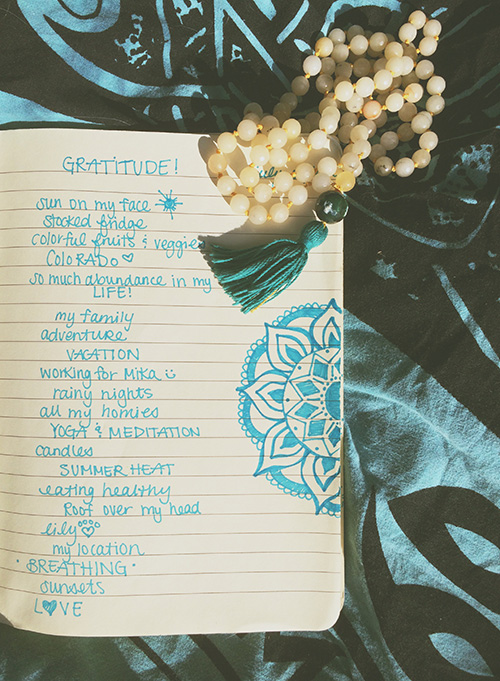 GRATITUDE!
sun on my face
stocked fridge
colorful fruits & veggies
COLORADO
so much abundance in my
LIFE!
my family
adventure
VACATION
working for Mika
rainy nights
all my homies
YOGA & MEDITATION
candles
SUMMER HEAT
eating healthy
Roof over my head
lily
my location
• BREATHING •
sunsets
LOVE